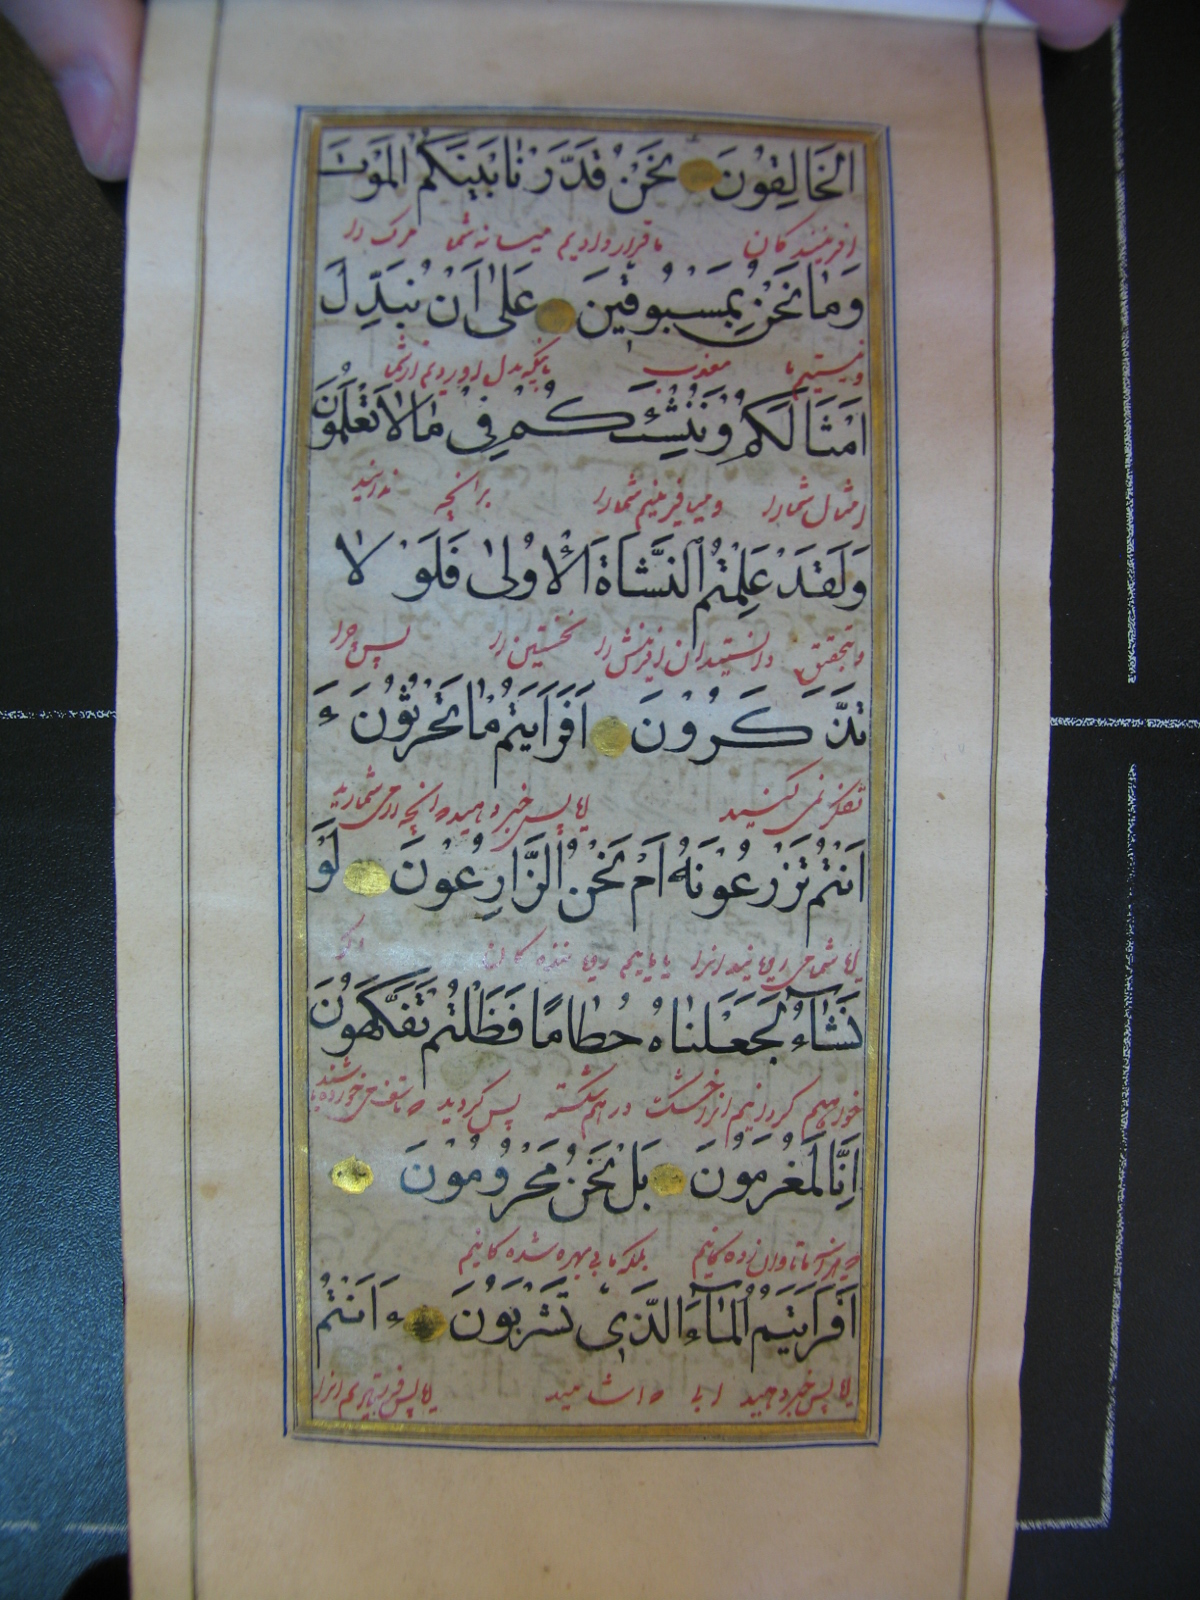 اَلْخَالِقُونَ نَحْنُ قَدَّرْنَا بَيْنَكُمُ الْمَوْتَ
افرینندکان ما قرار دادیم میانه شما مرک را
وَمَا نَحْنُ بِمَسْبُوقِينَ عَلَىٰ اَنْ نُبَدِّلَ
و نیستیم ما مغلوب بدل اوریم از شما
اَمْثَالَكُمْ وَنُنْشِئَكُمْ فِى مَا لَا تَعْلَمُونَ
امثال شما را و میافرینیم شما را برانچه ندانید
وَلَقَدْ عَلِمْتُمُ النَّشْاَةَ الْاُولىٰ فَلَوْ لَا
و بتحقیق دانستید ان افرینش را نخستین را پس چرا
تَذَكَّرُونَ اَفَرَاَيْتُمْ مَا تَحْرُثُونَ ءَ
تفکر نمی کنید ایا پس خبر دهید انچه را می
اَنْتُمْ تَزْرَعُونَهُ اَمْ نَحْنُ الزَّارِعُونَ لَوْ
ایا شما می رویانید انرا یا مائیم رویانندکان اکر
نَشَآءُ لَجَعَلْنَاهُ حُطَامًا فَظَلْتُمْ تَفَكَّهُونَ
خواهیم کردانیم انرا خشک درهم شکسته پس کردید
اِنَّا لَمُغْرَمُونَ بَلْ نَحْنُ مَحْرُومُونَ
ما تاوان زده کانیم بلکه ما بی بهره شده کانیم
اَفَرَاَيْتُمُ الْمَآءَ الَّذِى تَشْرَبُونَ ءَ اَنْتُمْ
ایا پس خبر دهید ابی ایا پس انرا